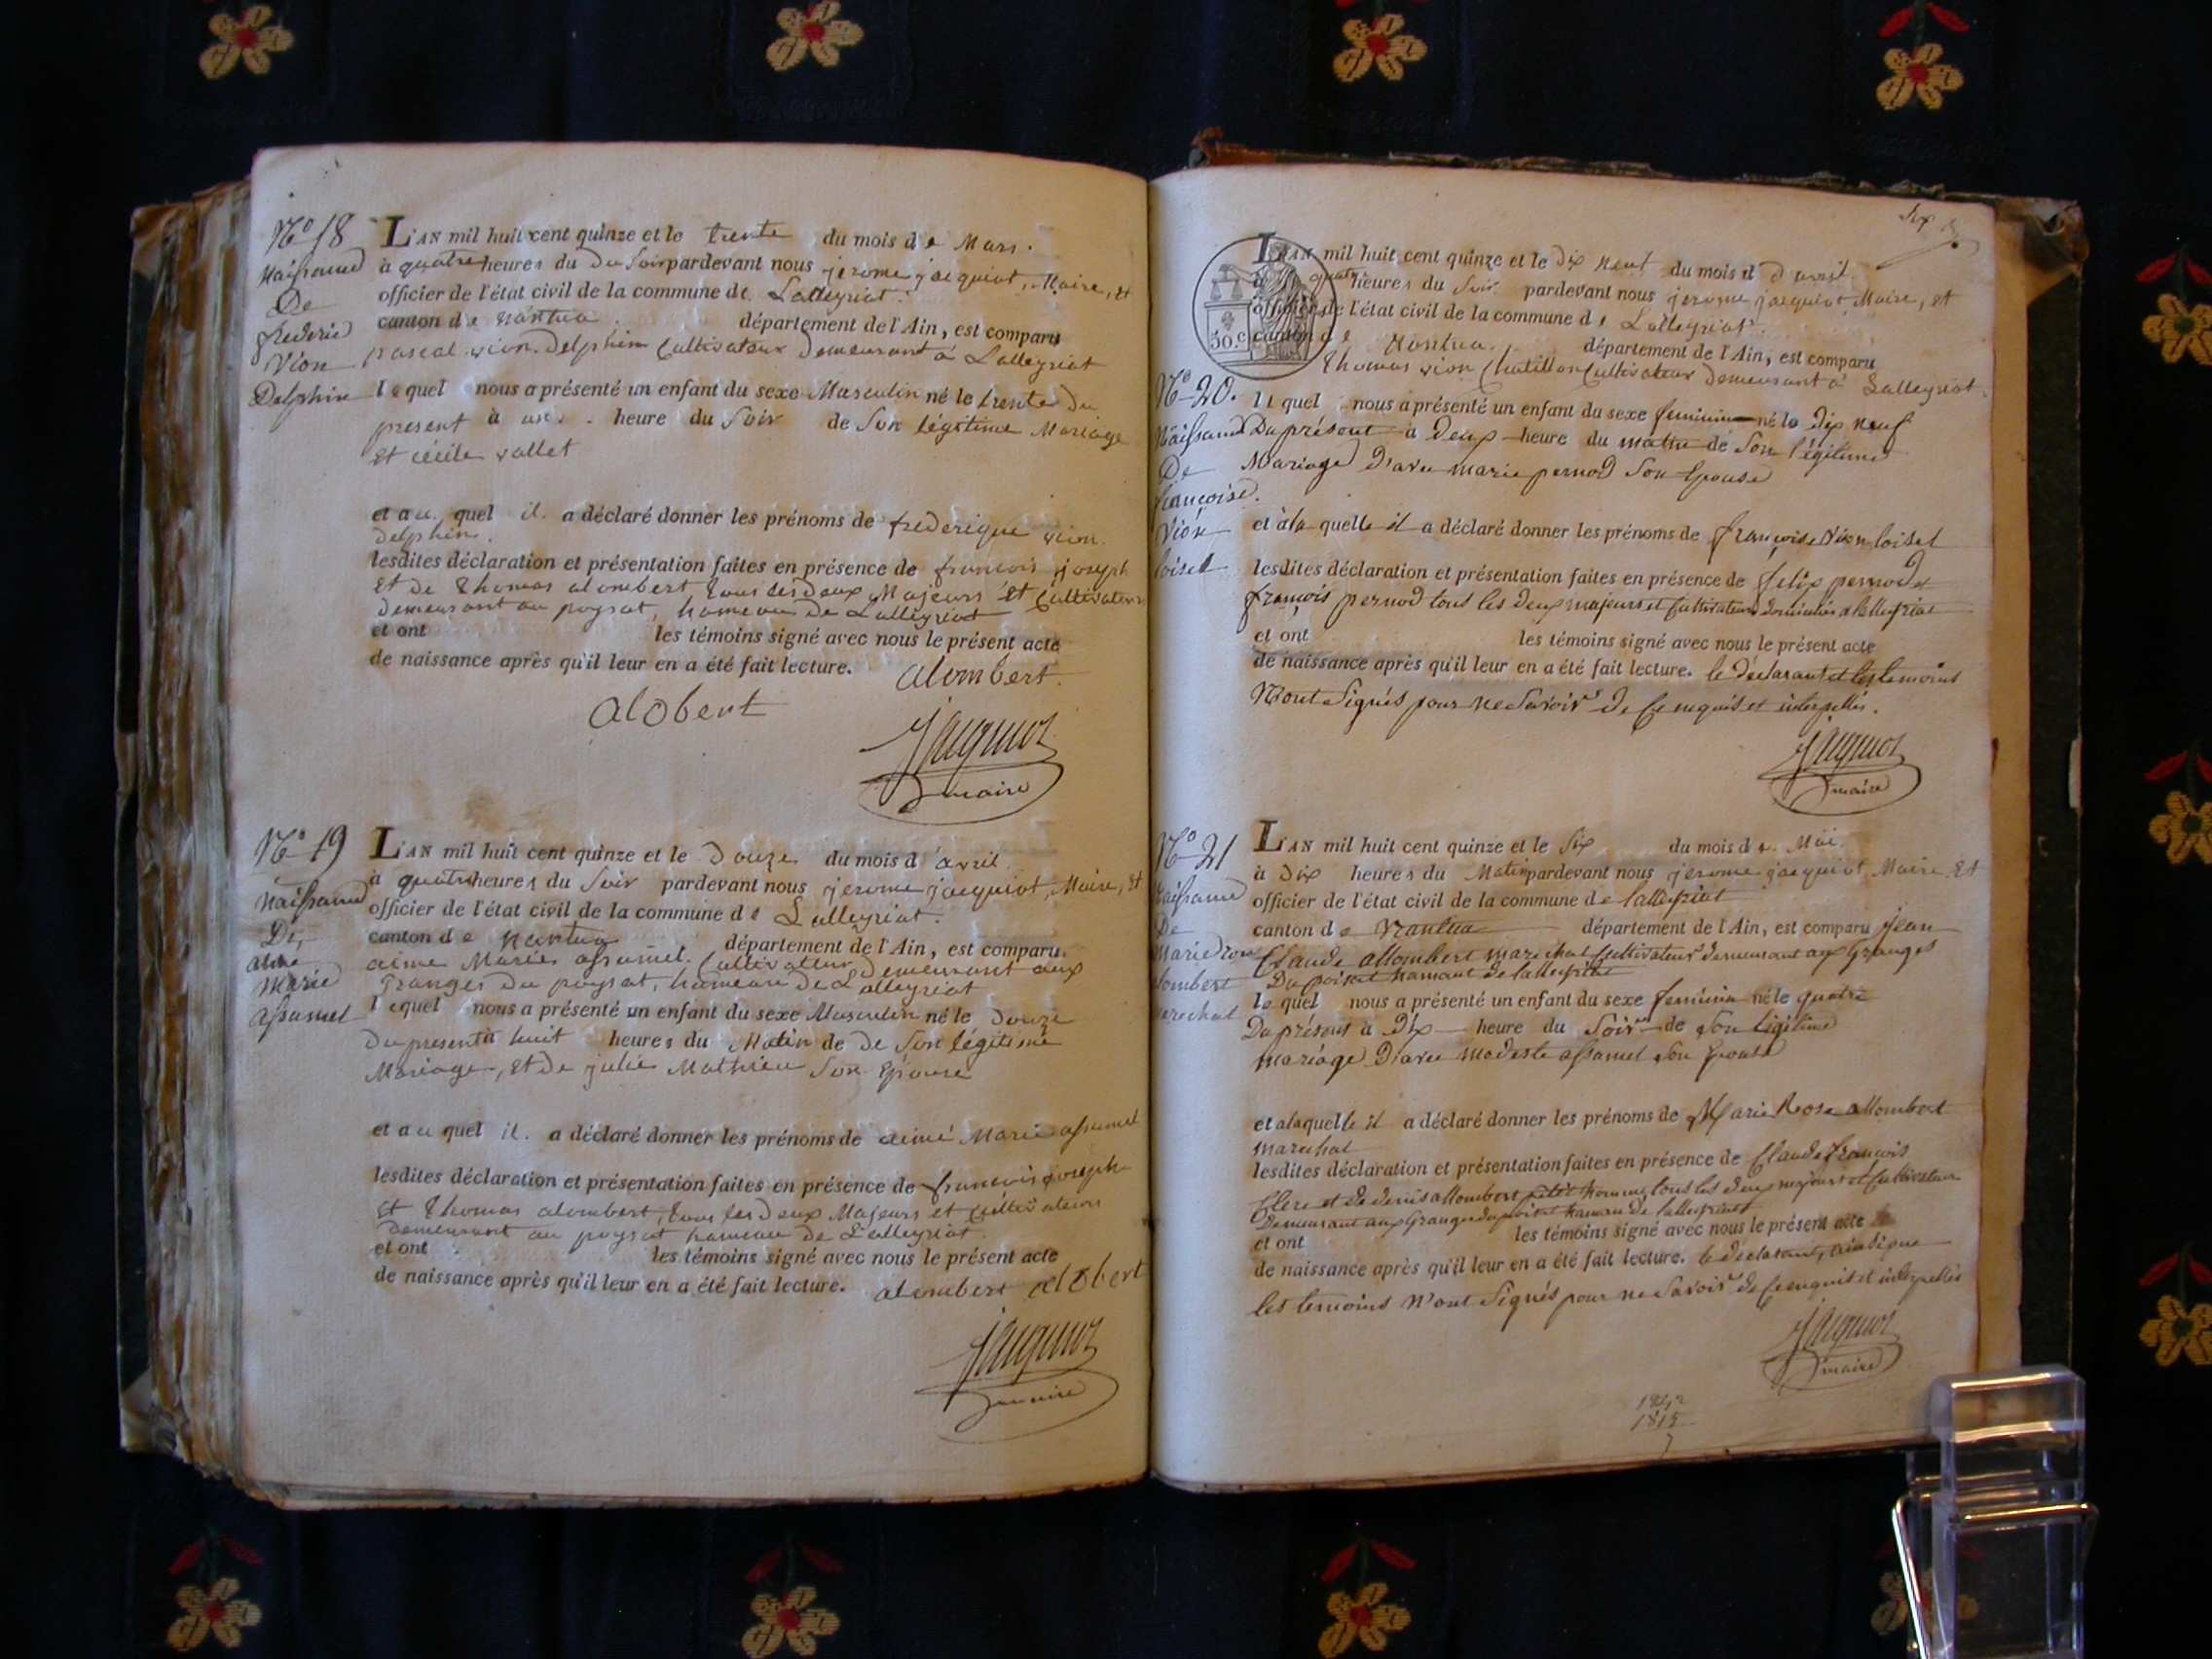 N.o 18
Naissance
De
frederic
Vion
Delphin
L'AN mil huit cent quinze et le trente du mois de Mars.
à quatre heures du du Soir pardevant nous jerome jacquiot, Maire, et
officier de l'état civil de la commune de Lalleyriat.
canton de nantua. département de l'Ain, est comparu
pascal vion Delphin Cultivateur Demeurant à Lalleyriat
lequel nous a présenté un enfant du sexe Masculin né le trente du
present à une heure du Soir de Son légitime Mariage
et cécile vallet
et au quel il a déclaré donner les prénoms de frederique vion
delphin.
lesdites déclaration et présentation faites en présence de francois joseph
et de Thomas alombert, tous les deux Majeurs et Cultivateurs
demeurant au poysat, hameau de Lalleyriat
et ont les témoins signé avec nous le présent acte
de naissance après qu'il leur en a été fait lecture. alombert
alobert
Jacquiot
maire
N.o 19
Naissance
De
aimé
Marie
assumel
L'AN mil huit cent quinze et le Douze du mois d'avril
à quatre heures du Soir pardevant nous jerome jacquiot, Maire, et
officier de l'état civil de la commune de Lalleyriat.
canton de nantua département de l'Ain, est comparu
aime Marie assumel. Cultivateur Demeurant aux
Granges du poysat, hameau de Lalleyriat
lequel nous a présenté un enfant du sexe Masculin né le douze
du present à huit heures du Matin de De Son légitime
Mariage, et de julie Mathieu Son Epouse
et au quel il a déclaré donner les prénoms de aimé Marie assumel
lesdites déclaration et présentation faites en présence de francois joseph
et Thomas alombert, tous les deux Majeurs et Cultivateurs
demeurant au poysat hameau de Lalleyriat
et ont les témoins signé avec nous le présent acte
de naissance après qu'il leur en a été fait lecture. alombert alobert
Jacquiot
maire
Six
30.c
N.o 20.
Naissance
De
françoise.
Vion
loisel
L'AN mil huit cent quinze et le dix neuf du mois d d'avril
à quatre heures du Soir pardevant nous jerome jacquiot Maire, et
officier de l'état civil de la commune de Lalleyriat.
canton de Nantua. département de l'Ain, est comparu
Thomas vion Chatillon Cultivateur demeurant à Lalleyriat.
le quel nous a présenté un enfant du sexe feminin né le dix neuf
Du présent à Deux heure du matin de Son légitime
Mariage D'avec marie pernod Son Epouse
et à la quelle il a déclaré donner les prénoms de françoise Vion loisel
lesdites déclaration et présentation faites en présence de felix pernod et
françois pernod tous les deux majeurs et Cultivateurs domiciliés a lalleyriat
et ont les témoins signé avec nous le présent acte
de naissance après qu'il leur en a été fait lecture. le déclarant et les temoins
N'ont Signés pour ne Savoir De Ce enquis et interpellés.
Jacquiot
maire
N.o 21
Naissance
De
Marie Rose
allombert
marechal
L'AN mil huit cent quinze et le Six du mois de Mai
à Dix heures du Matin pardevant nous jerome jacquiot Maire Et
officier de l'état civil de la commune de lalleyriat
canton de Nantua département de l'Ain, est comparu jean
Claude allombert marechal Cultivateur demeurant aux Granges
Du poisat hamaut de lalleyriat
le quel nous a présenté un enfant du sexe feminin né le quatre
Du présent à Dix heure du Soir de Son légitime
mariage D'avec modeste assumel Son Epouse
et a laquelle il a déclaré donner les prénoms de Marie Rose allombert
marechal
lesdites déclaration et présentation faites en présence de Claude François
Clerc et de denis allombert petit homme, tous les deux majeurs et Cultivateurs
Demeurant aux Granges du poisat hamau de lalleyriat
et ont les témoins signé avec nous le présent acte
de naissance après qu'il leur en a été fait lecture. le déclarant, ainsi que
les temoins N'ont Signés pour ne Savoir de Ce enquis et interpellés
Jacquiot
maire
1842
1815
7